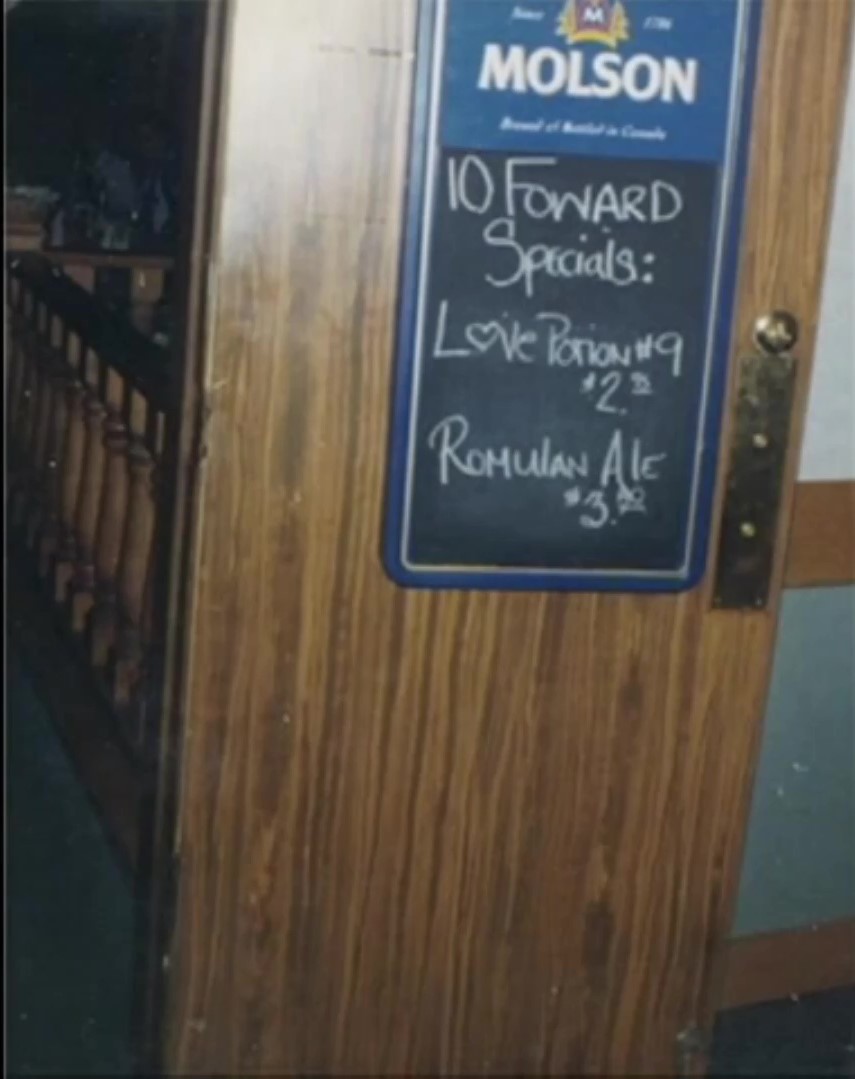 Since 1786
M
MOLSON
Brewed & Bottled in Canada
10 FOWARD
Specials:
Love Potion #9
$2.
ROMULAN Ale
$3.